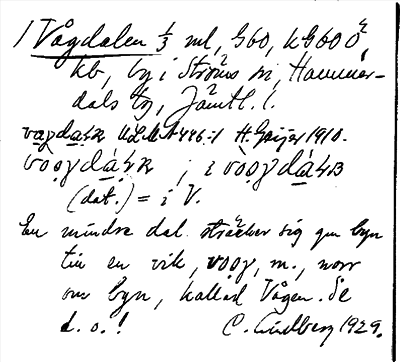 1 Vågdalen ⅓ ml, G60, kG60 Ö,
kb, by i Ströms sn, Hammer-
dals tg, Jämtl. l.
ULMA 446:1 H. Geijer 1910.
; i
(dat.) = i V.
En mindre dal sträcker sig gm byn
till en vik, vǫǫγ, m., norr
om byn, kallad Vågen. Se
d. o.! C. Lindberg 1929.